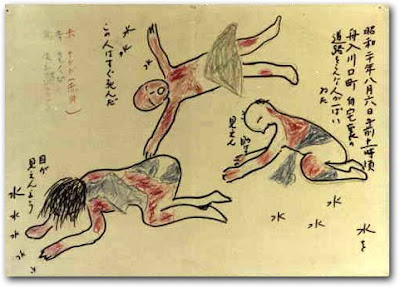 昭和二十年八月六日午前十時頃
舟入川口町自宅裏の
道路をこんな人が一ぱい
ねた
助けて
見えん
この人はすぐ死んだ
目が
見えんよう
水を
水
水
水
水
水
水
水
水